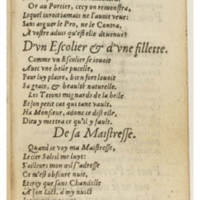 Or au Portier, cecy on remonstra,
Lequel iuroit iamais ne l'auoir veue:
Sans arguer le Pro, ne le Contra,
A vostre aduis qu'est elle deuenue?
D'vn Escolier & d'vne fillette.
Comme vn Escolier se iouoit
Auec vne belle pucelle,
Pour luy plaire, bien fort louoit
Sa grace, & beaulté naturelle.
Les Tetons mignards de la belle
Et son petit cas qui tant vault,
Ha Monsieur, adonc ce dist elle,
Dieu y mettra ce qu'il y fault.
De sa Maistresse.
Quand ie voy ma Maistresse,
Le cler Soleil me luyt:
S'ailleurs mon œil s'adresse
Ce m'est obscure nuit,
Et croy que sans Chandelle
A son Lict, à my nuict